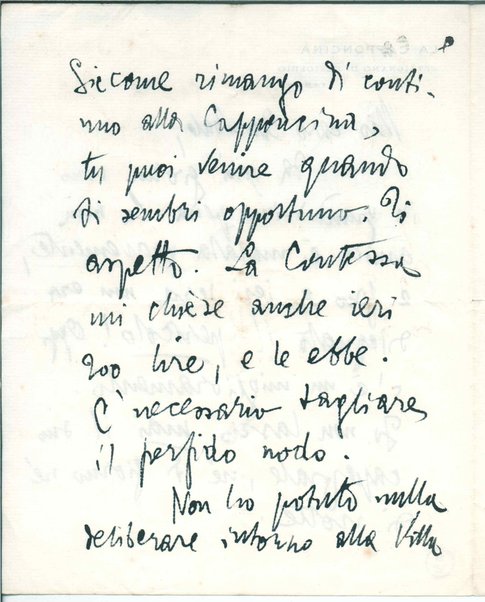 Siccome rimango di conti-
nuo alla Capponcina,
tu puoi venire quando
ti sembri opportuno. Ti
aspetto. La Contessa
mi chiese anche ieri
200 lire, e le ebbe.
È necessario tagliare
il perfido nodo.
Non ho potuto nulla
deliberare intorno alla Villa